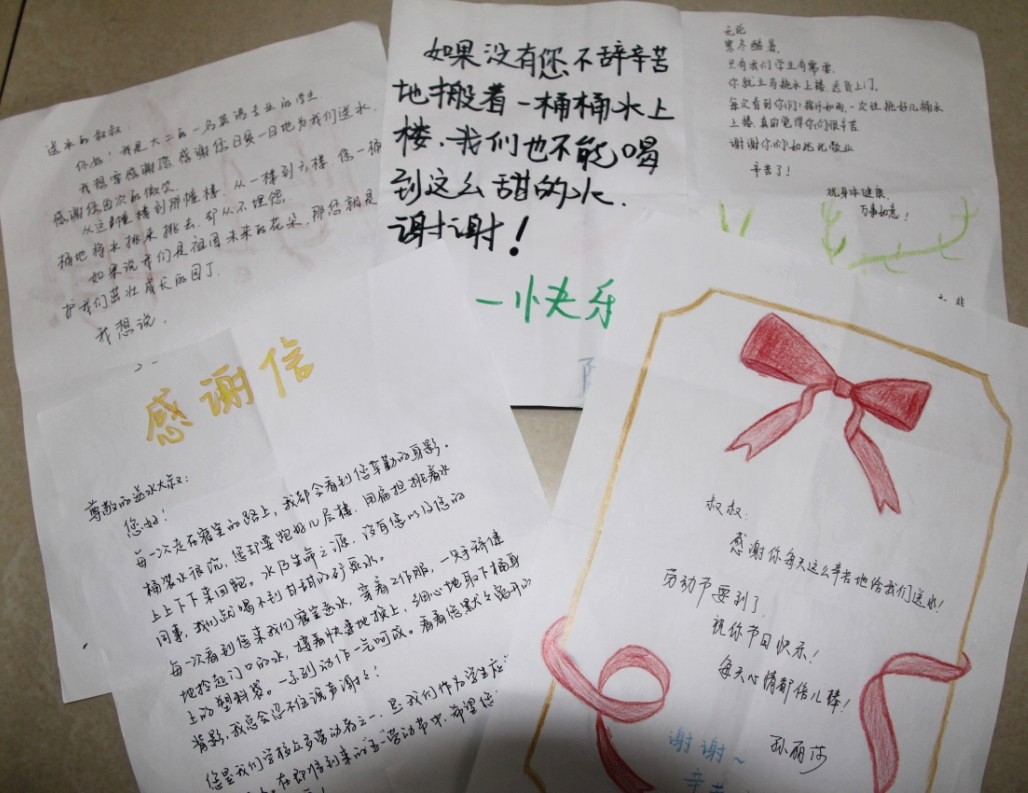 送水的叔叔:
你好!我是大二的一名英语专业的学生
我想要感谢您感谢您日复一日地为我们送水,
感谢您每次的微笑.
从这幢楼到那幢楼.从一楼到六楼 您一桶
桶地将水挑来挑去,却从不埋怨.
如果说我们是祖国未来的花朵,那您就是
护我们茁壮成长的园丁.
我想说,
如果没有您不辞辛苦
地搬着一桶桶水上
楼,我们也不能喝
到这么甜的水.
谢谢!
一快乐
无论
寒冬酷暑,
只有我们学生有需要,
你就立马挑水上楼,送货上门,
每次看到你们挥汗如雨,一次性挑好几桶水
上楼,真的觉得你们很辛苦
谢谢你们如此地敬业
辛苦了!
祝身体健康,
万事如意!
感谢信
尊敬的送水大叔:
您好!
每一次走在寝室的路上,我都会看到您辛勤的身影.
桶装水很沉,您却要跑好几层楼,用扁担挑着水
上上下下来回跑。水乃生命之源,没有您以及您的
同事,我们就喝不到甘甜的矿泉水。
每一次看到您来我们寝室送水,穿着工作服,一只手矫健
地拎起门口的水,接着快速地换上,细心地取下桶身
上的塑料袋。一系列动作一气呵成。看着您黑大々离开的
背影,我总会忍不住说声谢谢!
您是我们学校众多劳动者之一,是我们作为学生应
在即将到来的五一劳动节中,希望您
叔叔:
感谢你每天这么辛苦地给我们送水!
劳动节要到了,
祝你节日快乐!
每天心情都倍儿棒!
孙丽莎
谢谢~
辛苦